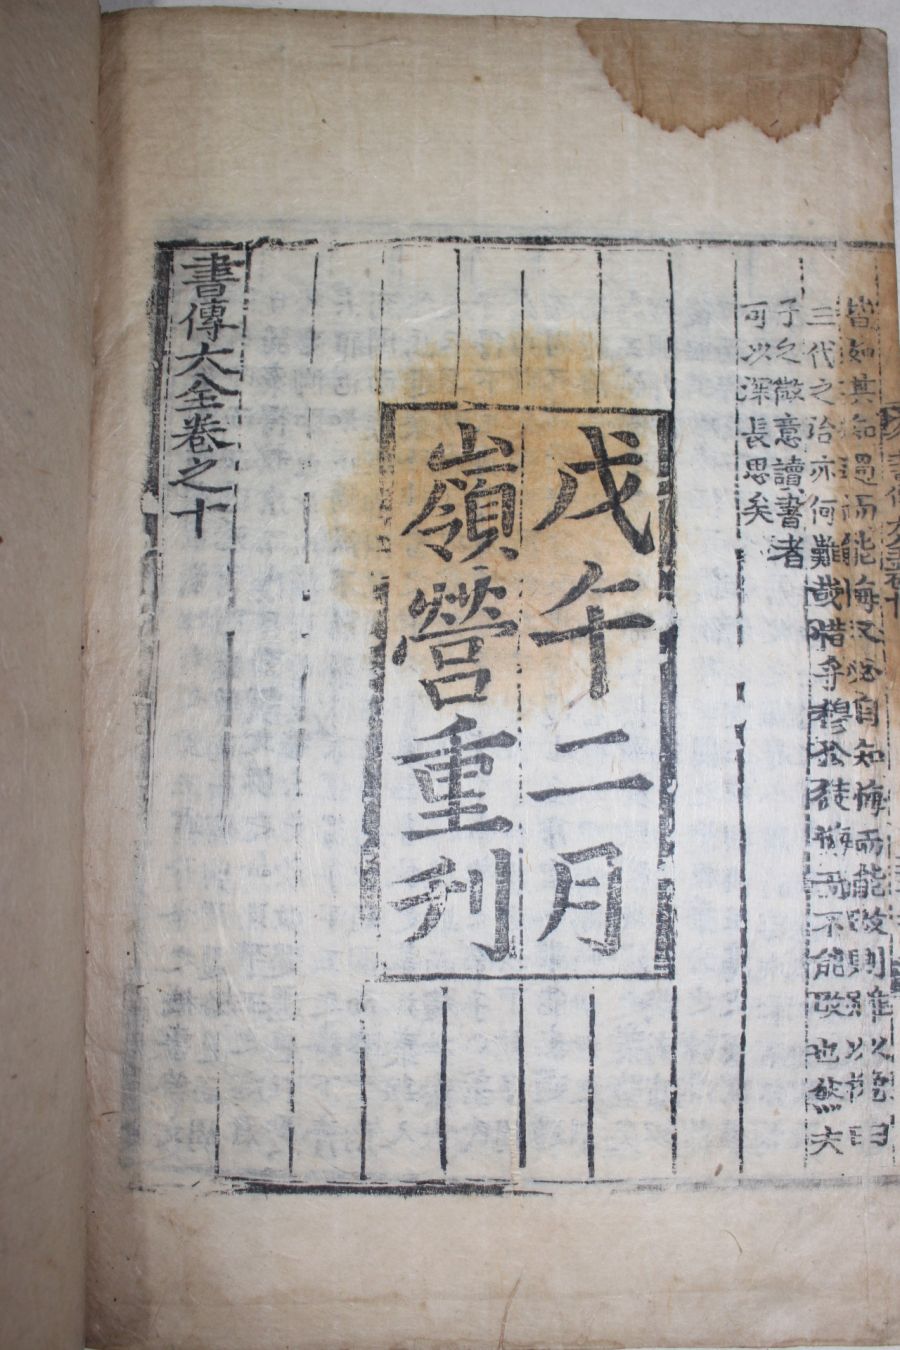 皆如其知過而能悔又必自知悔而能改則雖以
三代之治亦何難或惜乎穆公徒悔而不能改也然夫
子之微意讀書者
可以深長思矣
戊午二月
嶺營重刊
書傳大全卷之十